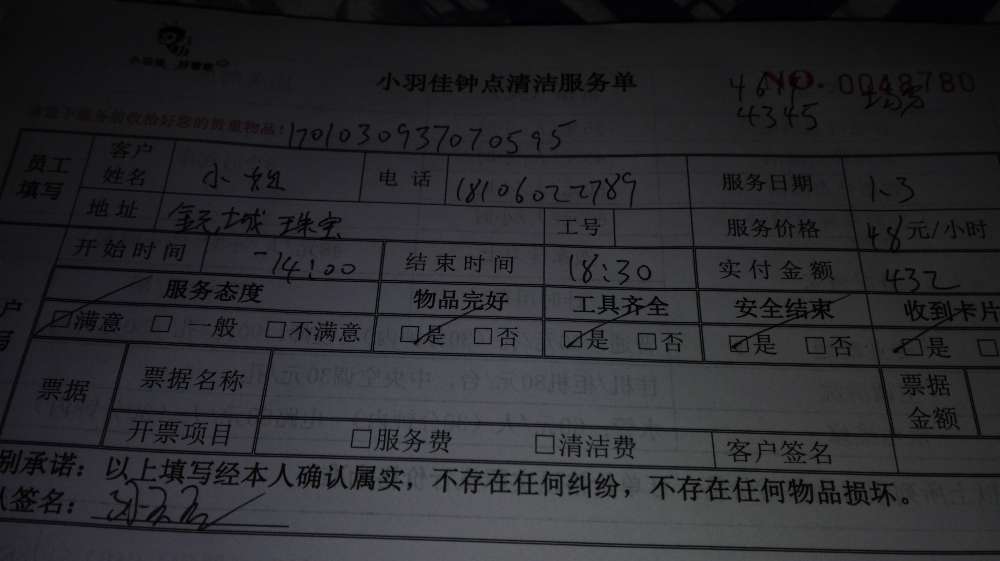 小羽佳钟点清洁服务单
NO. 0048780
4345
请客户服务前收拾好您的贵重物品!
1701030937070595
员工填写 客户姓名 小姐 电话 18106022789 服务日期 1.3
地址 城 珠宝 工号 服务价格 48元/小时
开始时间 14:00 结束时间 18:30 实付金额 432
服务态度 物品完好 工具齐全 安全结束 收到卡片
☑满意 □一般 □不满意 ☑是 □否 ☑是 □否 ☑是 □否 ☑是 □
票据 票据名称 票据金额
开票项目 □服务费 □清洁费 客户签名
别承诺：以上填写经本人确认属实，不存在任何纠纷，不存在任何物品损坏。
人签名：